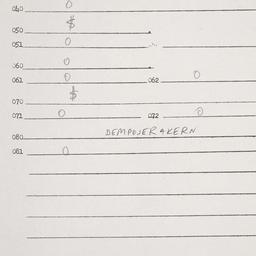 040 0
$
050
051 0
060 0
061 0 062 0
$
070
071 0 072 0
080 DEMPOJERAKERN
081 0